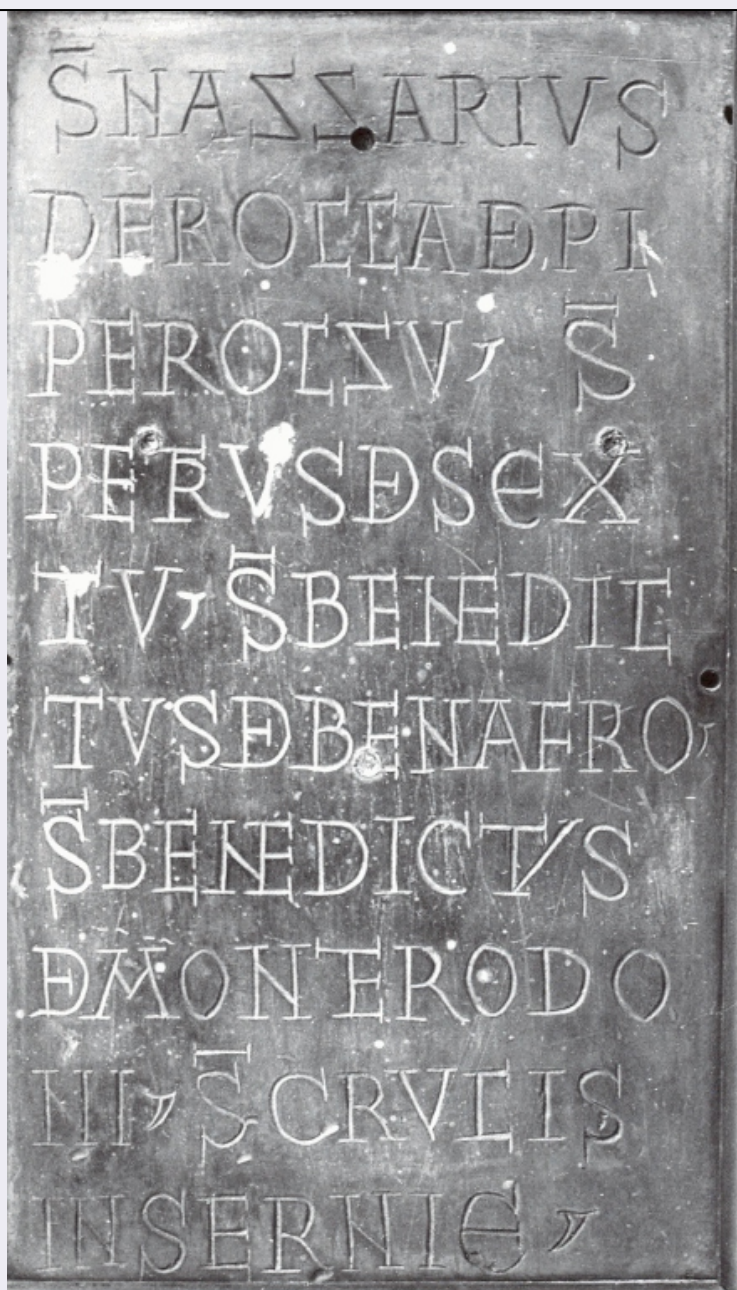 S̄NAZZARIVS
DEROCCADEPI
PEROCZV, S̄
PETRVSDESEX
TV, S̄BENEDIC
TVSDEBENAFRO,
S̄BENEDICTVS
DEMONTERODO
NI, S̄CRVCIS
INSERNIE,